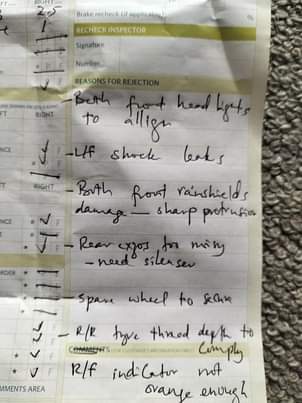 RIGHT
Brake recheck (if applicable)
RECHECK INSPECTOR
Signature
Number
REASONS FOR REJECTION
RIGHT
- Both front head lights
to allign
- L/f shock leaks
RIGHT
- Both front rainshields
damage — sharp protrusion
- Rear exhos too noisy
- need silenser
- Spare wheel to secure
- R/R tyre thread depth to
comply
COMMENTS
R/f indicator not
orange enough
MMENTS AREA